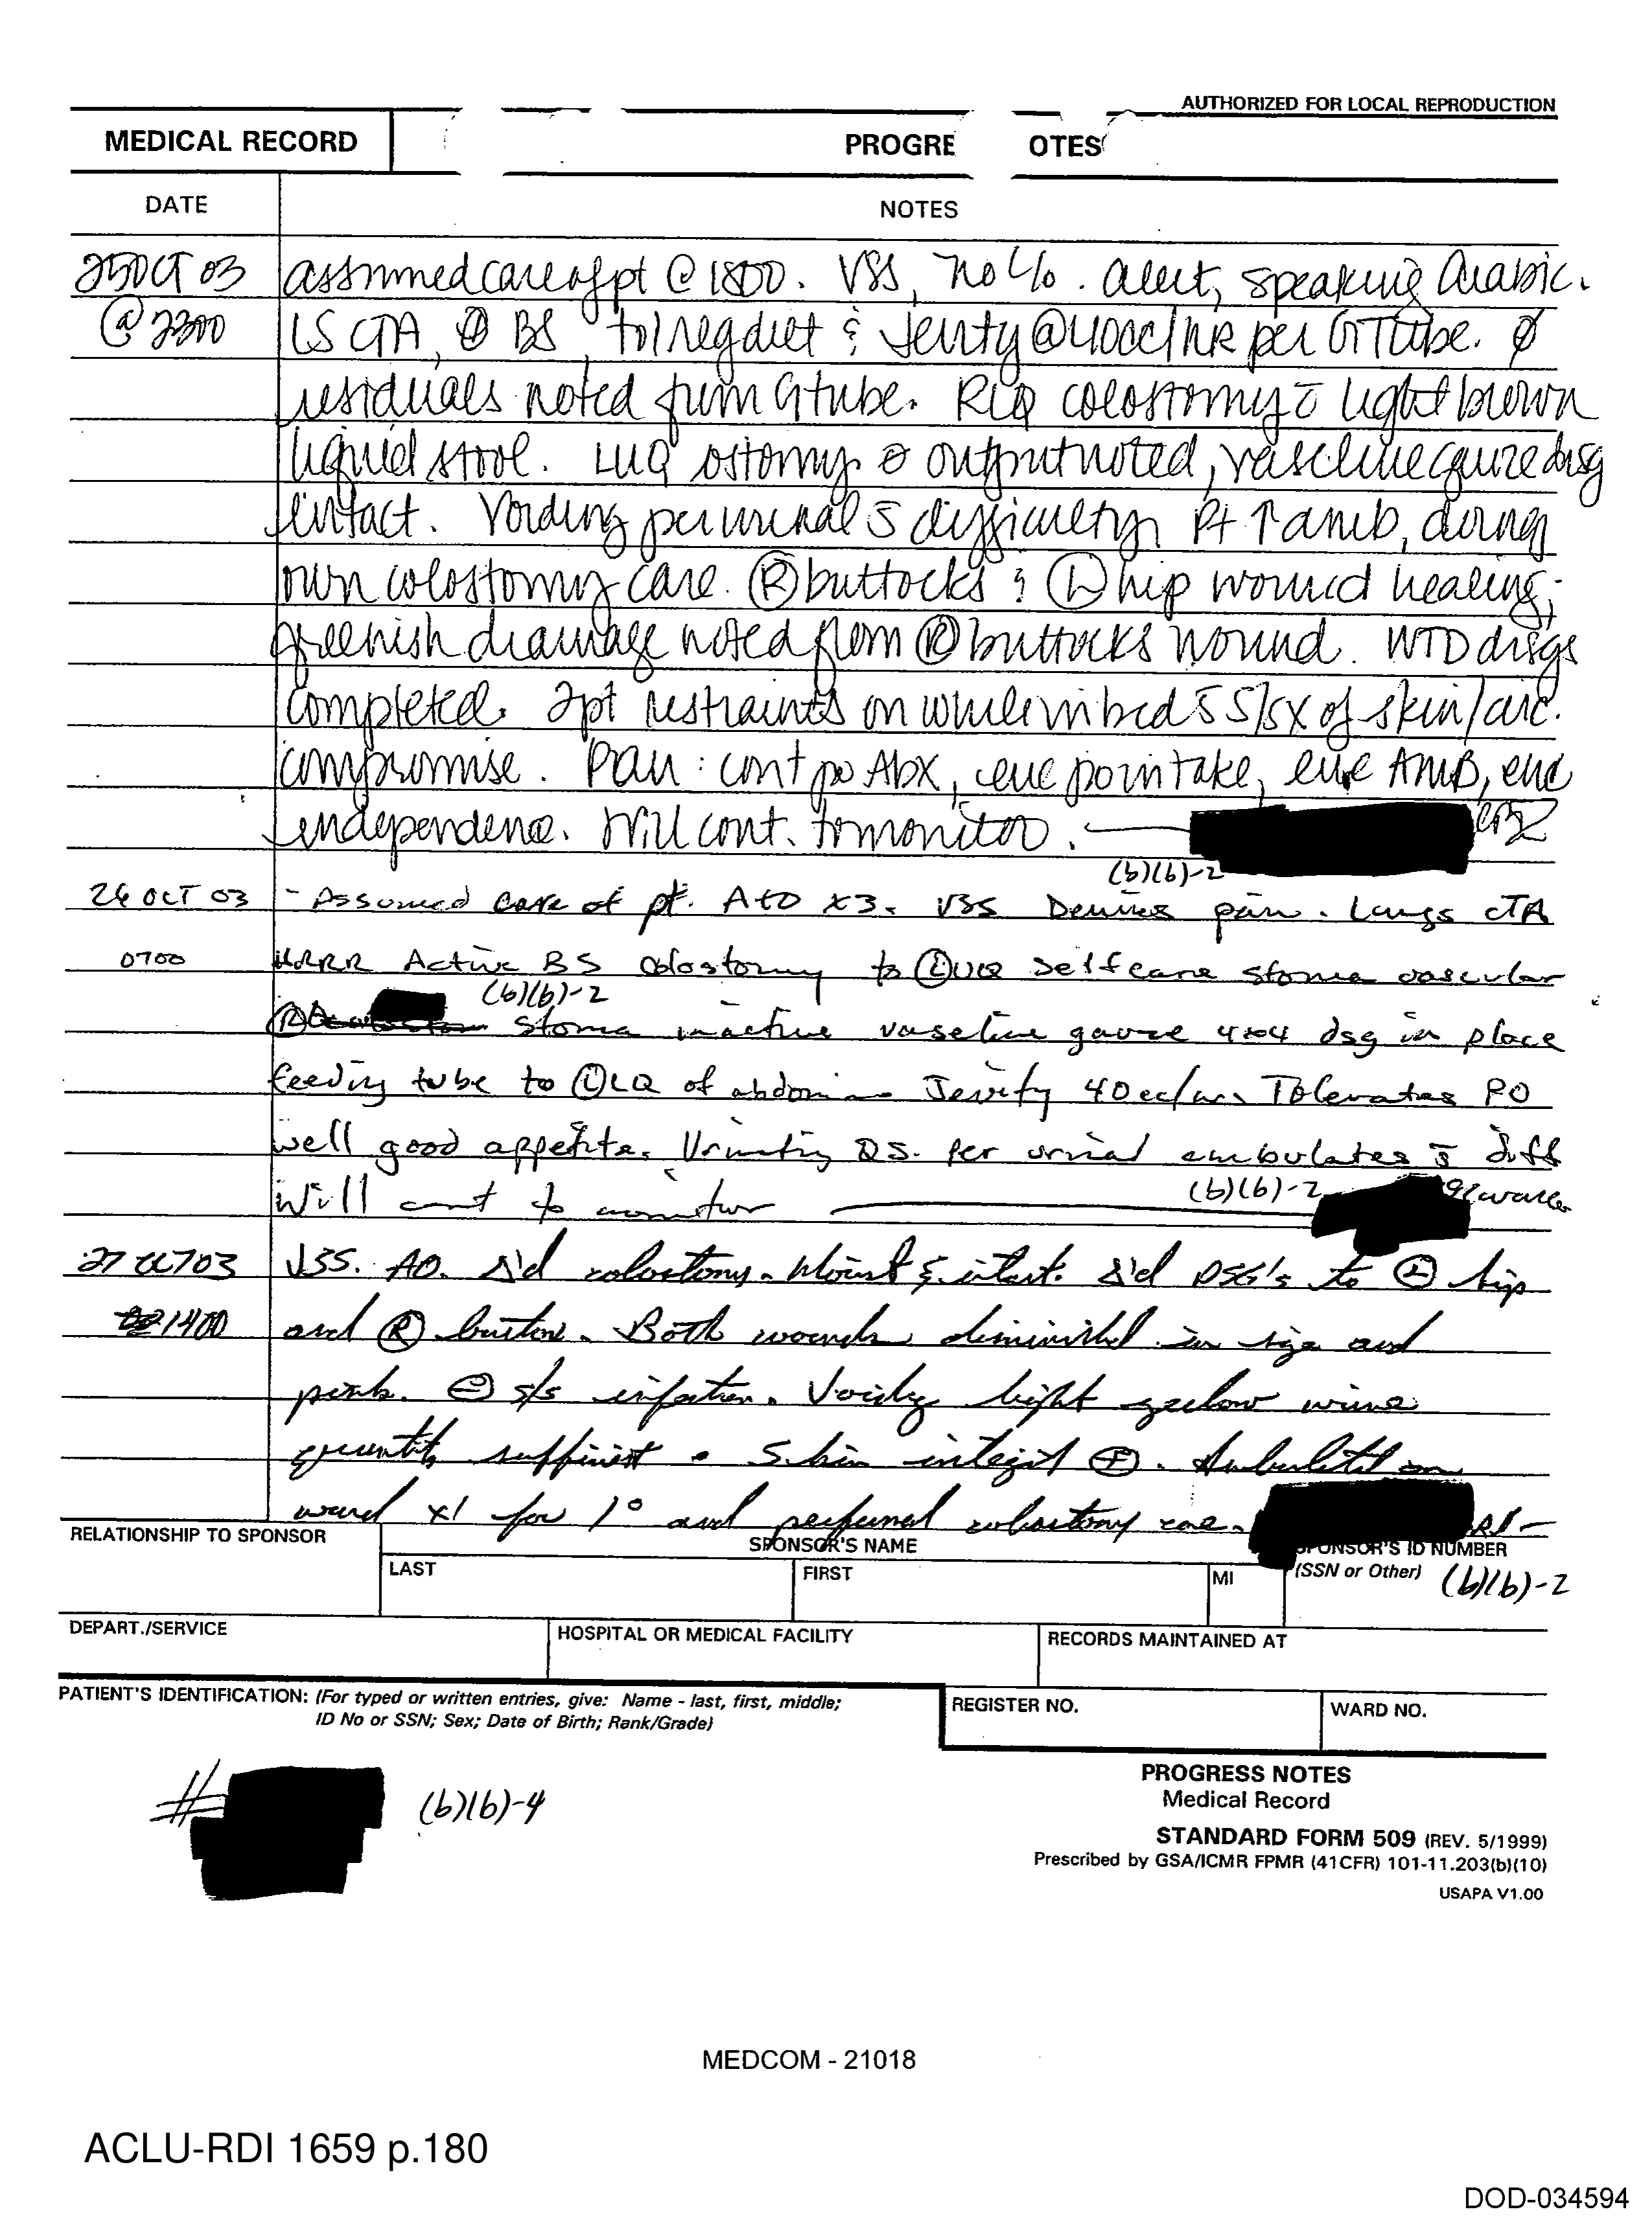 AUTHORIZED FOR LOCAL REPRODUCTION
MEDICAL RECORD PROGRE OTES
DATE NOTES
25 OCT 03 assumed care of pt @ 1800. VSS, no c/o. alert, speaking Arabic.
@ 2300 LS CTA, ⊕ BS, tol reg diet & Jevity @ 40cc/HR per GTube. ∅
residuals noted from Gtube. RLQ colostomy c̄ light brown
liquid stool. LUQ ostomy ∅ output noted, vaseline gauze dsg
intact. Voiding per urinal s̄ difficulty. Pt ↑ amb, doing
own colostomy care. Ⓡ buttocks & Ⓛ hip wound healing;
greenish drainage noted from Ⓡ buttocks wound. WTD dsgs
completed. 2pt restraints on while in bed s̄ s/sx of skin/circ.
compromise. Plan: cont po Abx, enc po intake, enc AMB, enc
independence. Will cont. to monitor.
(b)(6)-2
26 OCT 03 - Assumed care of pt. A+O x3. VSS Denies pain. Lungs CTA
0700 HRRR Active BS colostomy to Ⓛ UQ self care stoma vascular
(b)(6)-2
Ⓡ stoma inactive vaseline gauze 4x4 dsg in place
feeding tube to Ⓛ LQ of abdomen Jevity 40cc/hr. Tolerates PO
well good appetite. Urinating QS. per urinal ambulates s̄ diff
Will cont to monitor (b)(6)-2
27 OCT 03 VSS. AO. Δ'd colostomy. Moist & intact. Δ'd DSG's to Ⓛ hip
1400 and Ⓡ buttock. Both wounds diminished in size and
pink. ⊖ s/s infection. Voiding light yellow urine
quantity sufficient. Skin integrity ⊕. Ambulated on
ward x1 for 1° and performed colostomy care.
RELATIONSHIP TO SPONSOR SPONSOR'S NAME SPONSOR'S ID NUMBER
LAST FIRST MI (SSN or Other) (b)(6)-2
DEPART./SERVICE HOSPITAL OR MEDICAL FACILITY RECORDS MAINTAINED AT
PATIENT'S IDENTIFICATION: (For typed or written entries, give: Name - last, first, middle; REGISTER NO. WARD NO.
ID No or SSN; Sex; Date of Birth; Rank/Grade)
# (b)(6)-4
PROGRESS NOTES
Medical Record
STANDARD FORM 509 (REV. 5/1999)
Prescribed by GSA/ICMR FPMR (41CFR) 101-11.203(b)(10)
USAPA V1.00
MEDCOM - 21018
ACLU-RDI 1659 p.180
DOD-034594